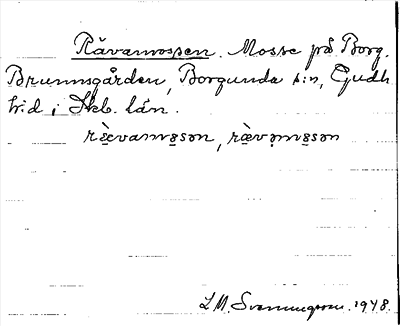 Rävamossen. Mosse på Borg.
Brunnsgården, Borgunda s:n, Gudh.
h:d i Skb. län.
rævamosən, rævəmosən
L.M. Svenungsson. 1948.